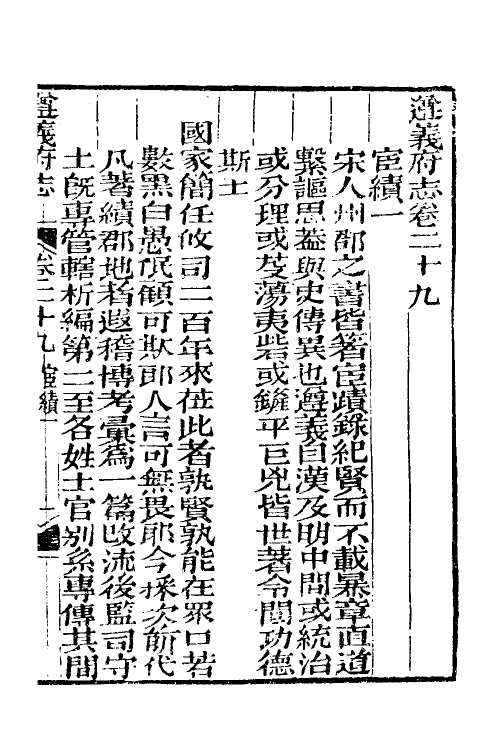 遵義府志卷二十九
宦績一
宋人州郡之書皆箸宦蹟錄紀賢而不載㬥章直道
繫謳思葢與史傳異也遵義自漢及明中間或統治
或分理或芟蕩夷砦或鏟平巨兇皆世著令聞功德
斯土
國家簡任攸司二百年來莅此者孰賢孰能在眾口若
數黑白愚氓傾可欺郎人言可無畏耶今採次前代
凡著績郡地者遐稽博考彙爲一篇改流後監司守
土旣專管轄析編第二至各姓土官别系專傳其間
遵義府志 卷二十九 宦績一 一